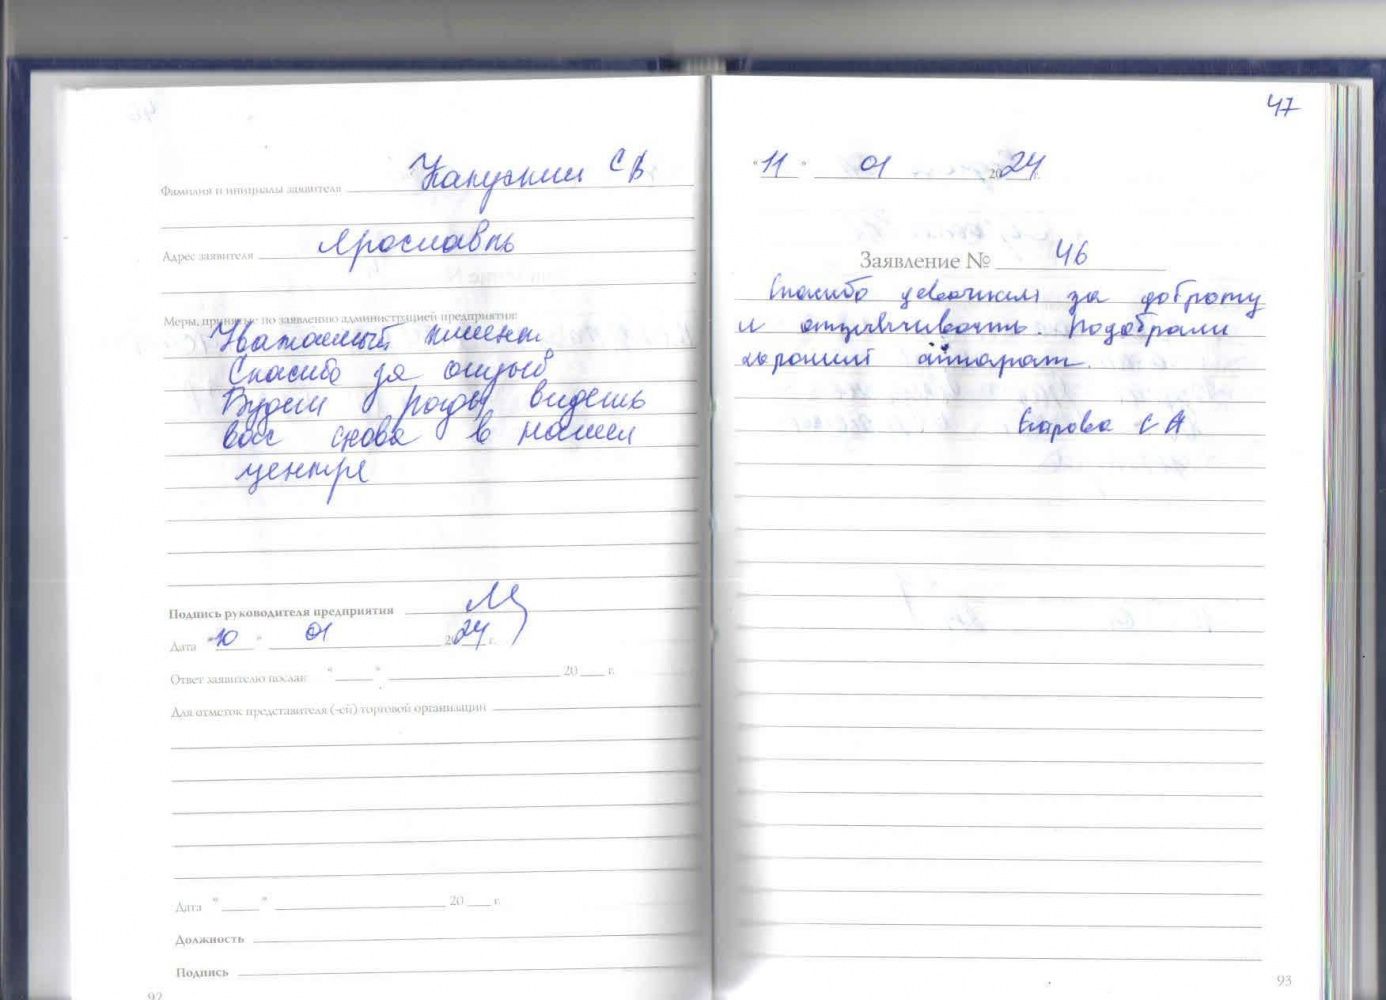 Фамилия и инициалы заявителя Капухин С В
Адрес заявителя Ярославль
Меры, принятые по заявлению администрацией предприятия:
Уважаемый клиент
Спасибо за отзыв
Будем рады видешь
вас снова в нашем
центре
Подпись руководителя предприятия
Дата "10" 01 2024 г.
Ответ заявителю послан "___" ___ 20___ г.
Для отметок представителя (-ей) торговой организации
Дата "___" ___ 20___ г.
Должность
Подпись
92
47
"11" 01 2024
Заявление № 46
Спасибо девочкам за доброту
и отзывчивость. Подобрали
хороший аппарат.
Егорова С А
93